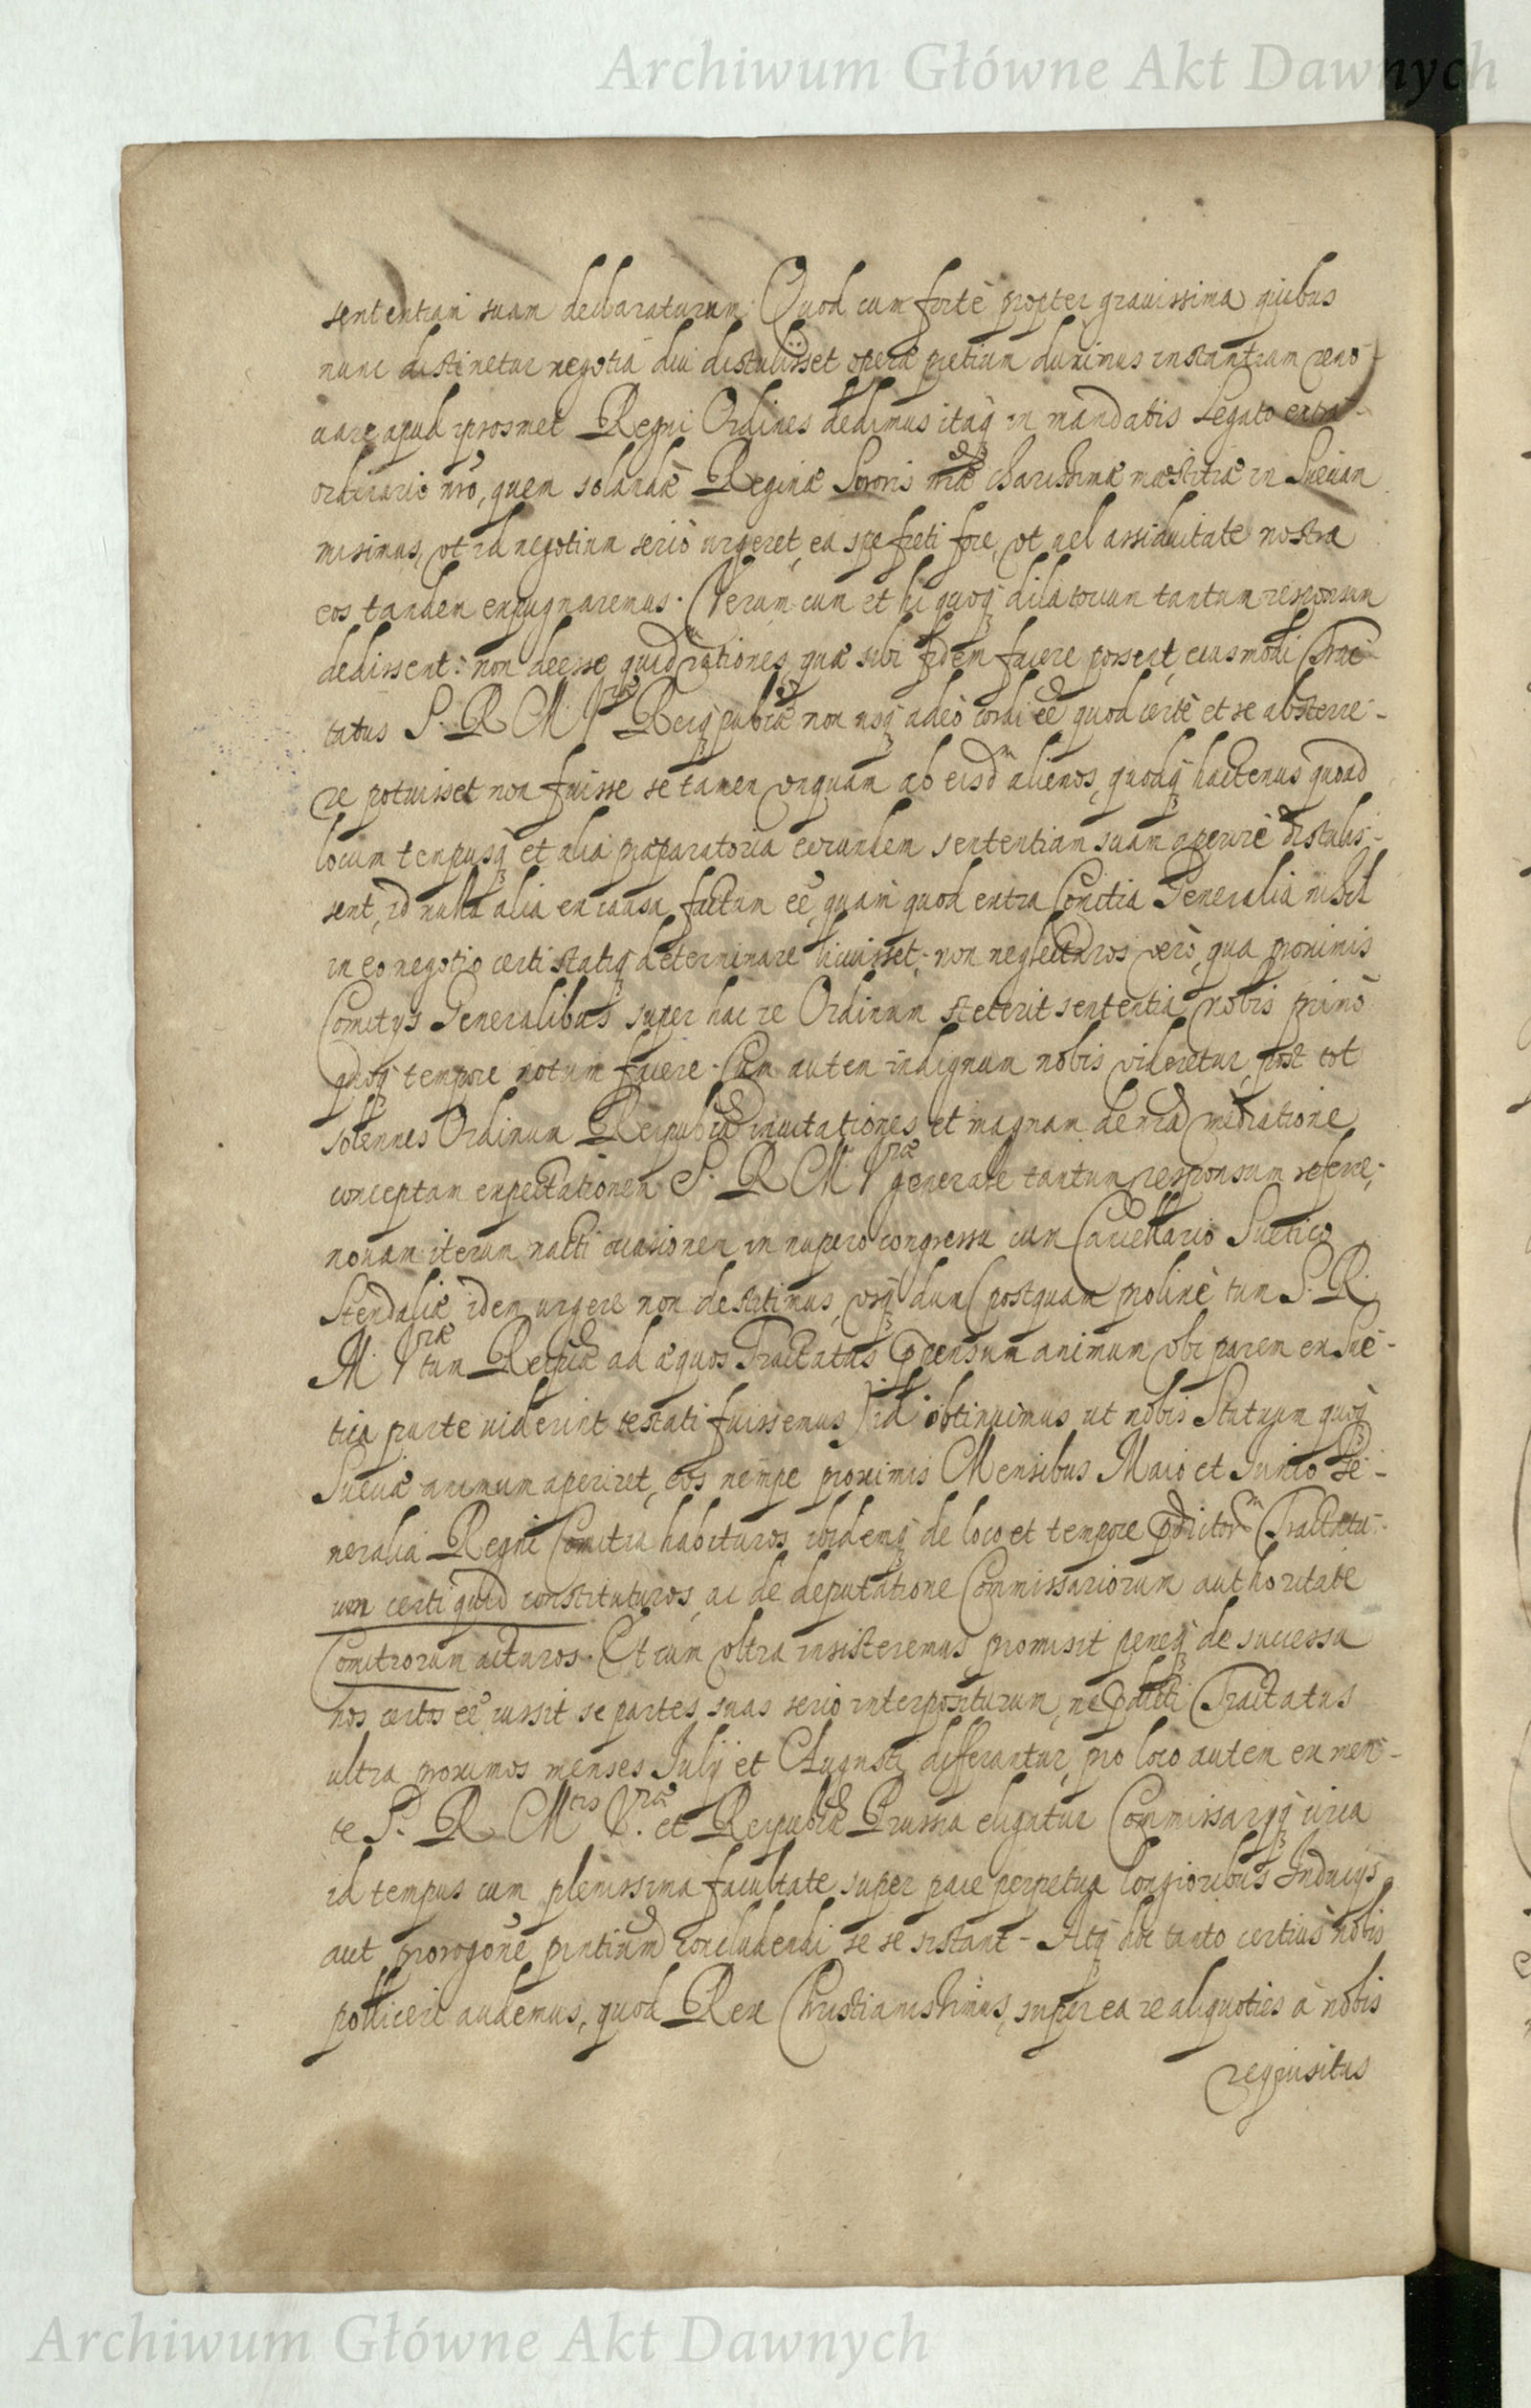 Archiwum Główne Akt Dawnych
sententiam suam declaraturum. Quod cum fortè propter grauissima quibus
nunc distinetur negotia diu distulisset operæ pretium duximus instantiam reno-
uare apud ipsosmet Regni Ordines dedimus itaq in mandatis Legato extra-
ordinario nro, quem solandæ Reginæ Sororis nræ charissimæ mæstitiæ in Sueciam
misimus, vt id negotium seriò urgeret, ea spe freti fore, vt vel assiduitate nostra
eos tandem expugnaremus. Verum cum et hi quoq dilatorium tantum responsum
dedissent: non deesse quid rationes quæ sibi fidem facere possent, eiusmodi Trac-
tatus S. R M. Vræ Reiq publicæ non usq adeò cordi eē quod certè et se absterre-
re potuisset non fuisse se tamen vnquam ab eisdm alienos, quodq hactenus quoad
locum tempusq et alia præparatoria eorundem sententiam suam aperire distulis-
sent, id nulla alia ex causa factum eē, quam quod extra Comitia Generalia nihil
in eo negotio certi statiq determinare licuisset; non neglecturos verò, qua proximis
Comitys Generalibus super hac re Ordinum steterit sententia nobis primò
quoq tempore notum facere. Cum autem indignum nobis videretur, post tot
solennes Ordinum Reipublicæ inuitationes et magnam de nra mediatione
conceptam expectationem S. R M. Vræ generale tantum responsum referre;
nouam iterum nacti occasionem in nupero congressu cum Cancellario Suetico
Stendaliæ idem urgere non destitimus, vsq dum (postquam prolixè tum S. R.
M. Vræ tum Reipcæ ad æquos Tractatus ppensum animum vbi parem ex Sue-
tica parte viderint testati fuissemus) id obtinuimus ut nobis Statuum quoq
Sueciæ animum aperiret, eos nempe proximis Mensibus Maio et Iunio Ge-
neralia Regni Comitia habituros ibidemq de loco et tempore pdictorm Tractatu-
um certi quid constituturos, ac de deputatione Commissariorum authoritate
Comitiorum acturos. Et cum vltra insisteremus promisit peneq de successu
nos certos eē iussit se partes suas serio interpositurum, ne pdicti Tractatus
ultra proximos menses Iulij et Augusti differantur, pro loco autem ex men-
te S. R Mtis Vræ. et Reipublicæ Prussia eligatur Commissarijq circa
id tempus cum plenissima facultate super pace perpetua longioribus Inducijs
aut prorogone pntium concludendi se se sistant - Atq hoc tanto certius nobis
polliceri audemus, quod Rex Christianissimus, super ea re aliquoties à nobis
requisitus
Archiwum Główne Akt Dawnych